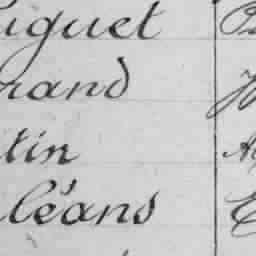 iguet
rand
tin
léans